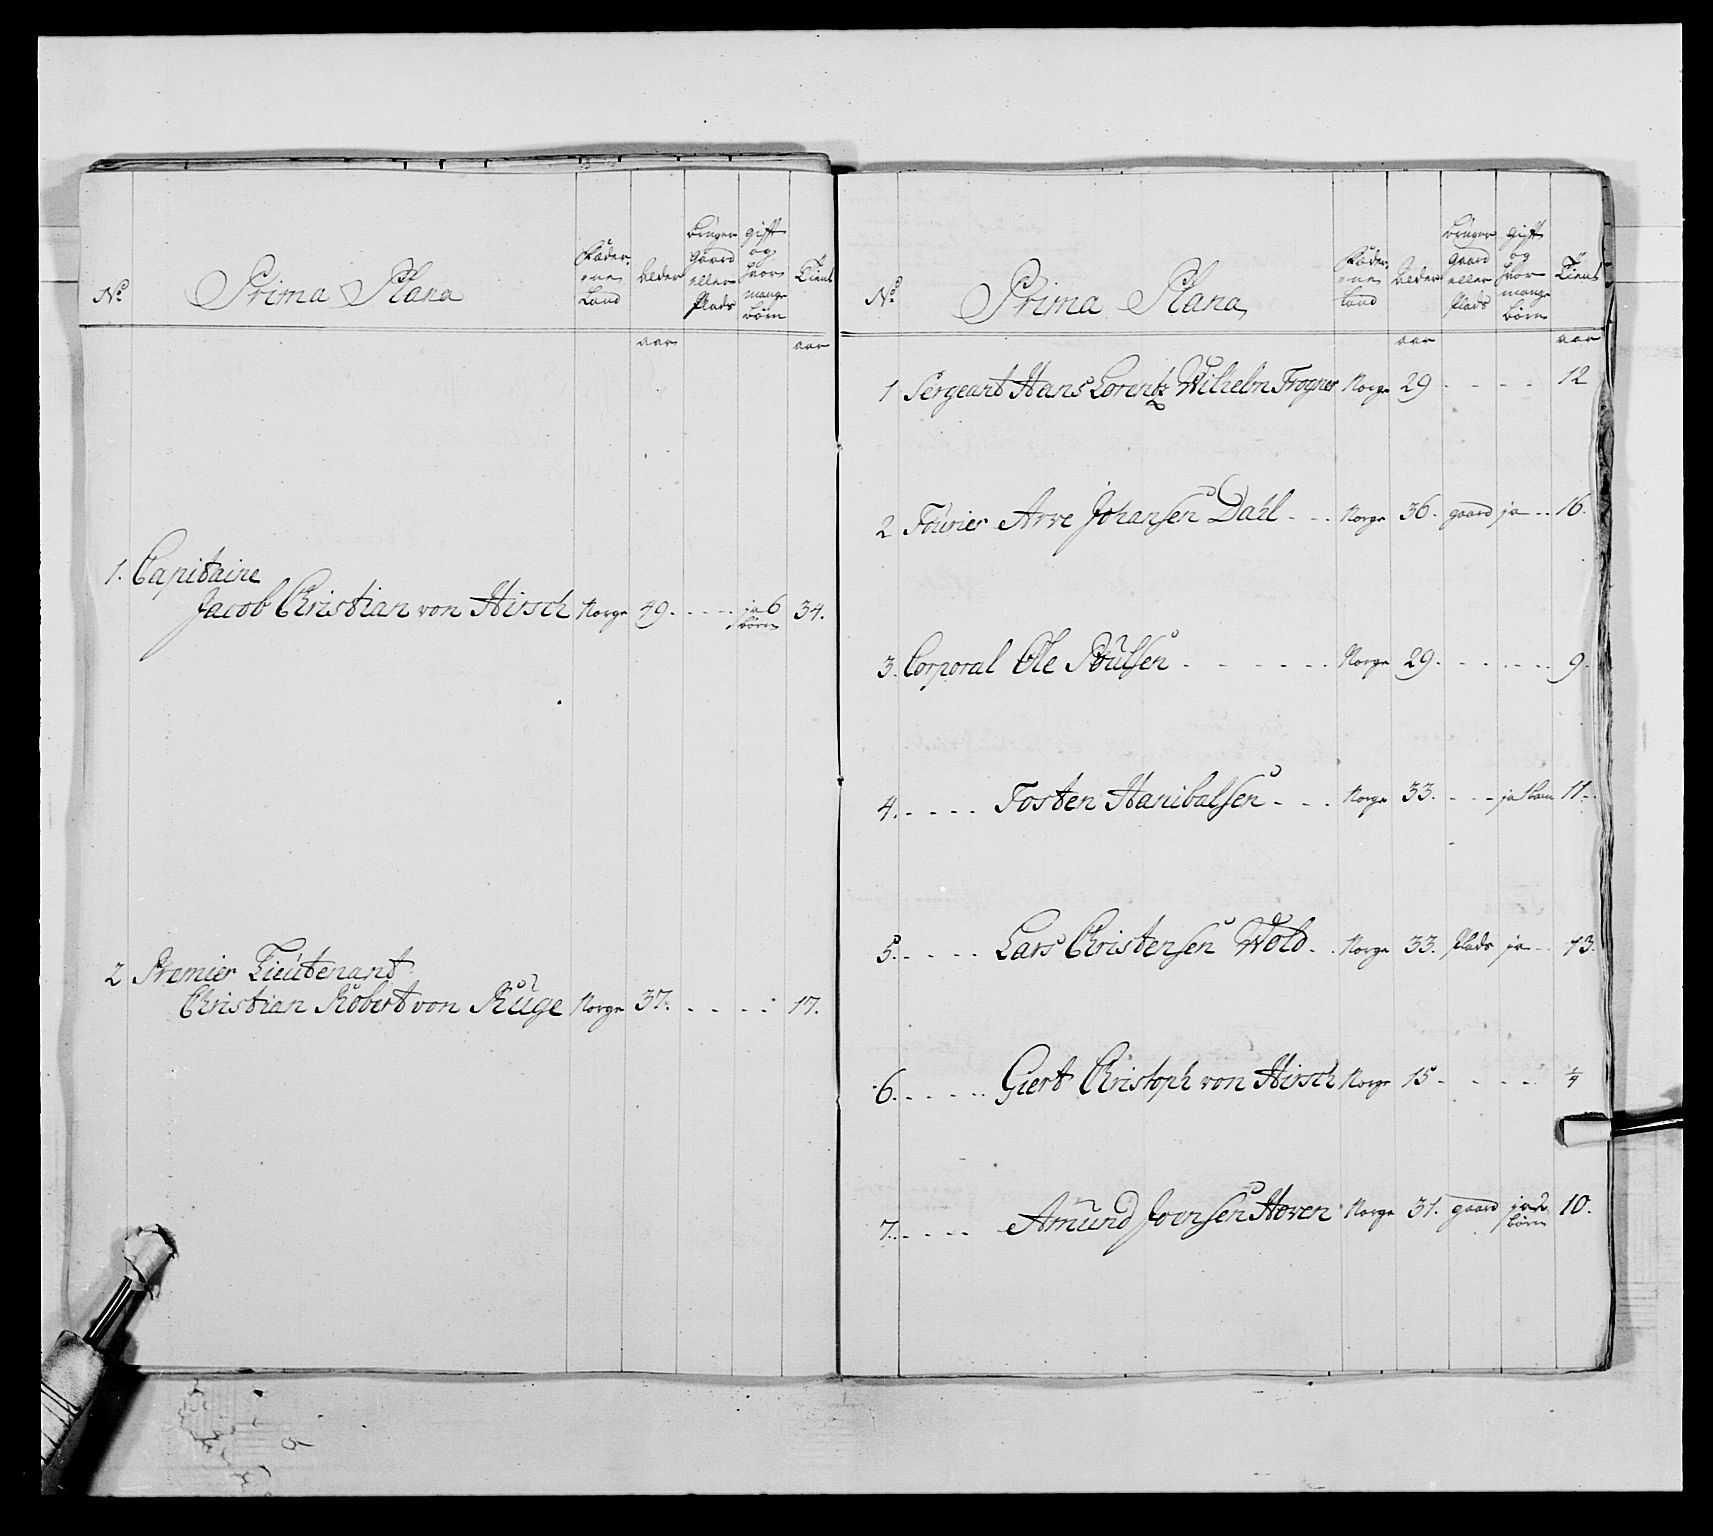 No Prima Plana Fæder- ne Land Alder bruger Gaard eller Plads gift og hvor mange børn Tient
aar aar
1. Capitaine
Jacob Christian von Hirsch Norge 49. - - - - ja 6 børn 34.
2 Premier Lieutenant
Christian Robert von Ruge Norge 37. - - - - 17.
No Prima Plana, Fæder- ne Land Alder bruger Gaard eller Plads gift og hvor mange børn Tient
aar aar
1 Sergeant Hans Lorentz Wilhelm Frogner Norge 29 - - - - 12
2 Fourier Arve Johansen Dahl - - - Norge 36. gaard ja - - 16.
3. Corporal Ole Poulsen - - - - - - - Norge 29. - - - - - - 9.
4. - - - - Tosten Hanibalsen - - - Norge 33. - - - ja 11.
5. - - - - Lars Christensen Wold - - Norge 33. Plads ja - - 13.
6. - - - - - Giert Christoph von Hirsch Norge 15 - - - - - 
7. - - - - Amund Joensen Hoven Norge 31. gaard ja 2 børn 10.